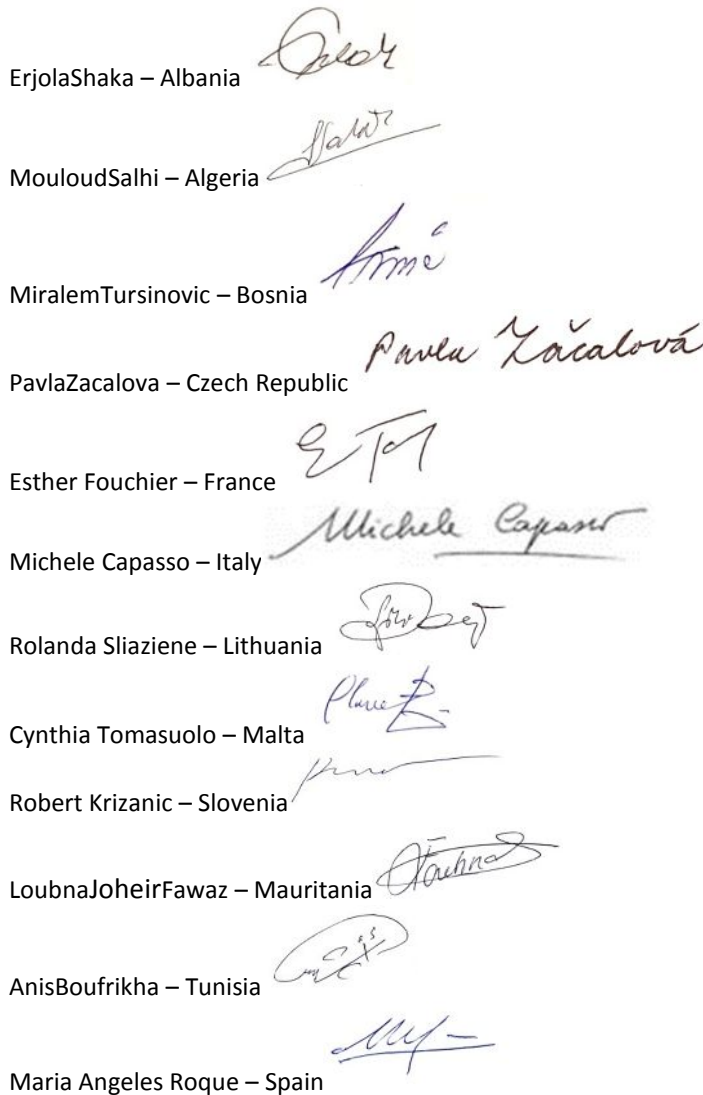 ErjolaShaka – Albania
MouloudSalhi – Algeria
MiralemTursinovic – Bosnia
Pavla Záčalová
PavlaZacalova – Czech Republic
Esther Fouchier – France
Michele Capasso
Michele Capasso – Italy
Rolanda Sliaziene – Lithuania
Cynthia Tomasuolo – Malta
Robert Krizanic – Slovenia
LoubnaJoheirFawaz – Mauritania
AnisBoufrikha – Tunisia
Maria Angeles Roque – Spain